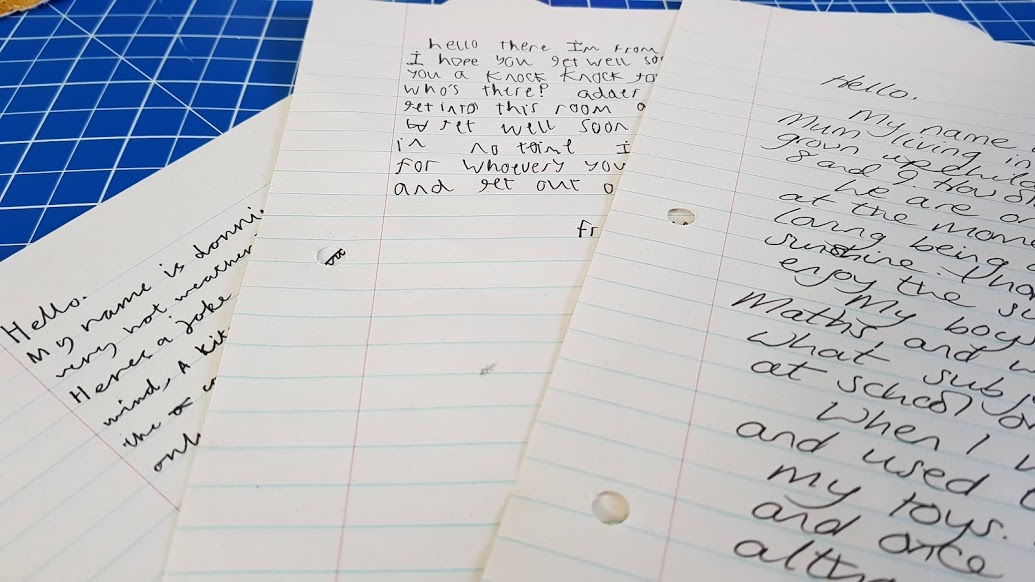 Hello.
My name is donni
very hot weather
Heres a joke
wind, A kit
the
only
hello there Im from
I hope you get well so
you a knock knock jo
who's there? adder
get into this room
get well soon
in no I
for whoevery you
and get out o
fr
Hello.
My name
Mum living in
grown up child
8 and 9. How
We are
at the mom
loving being
sunshine. I ho
enjoy the su
My boys
Maths, and w
What subj
at school or
When I w
and used t
my toys.
and once
altho